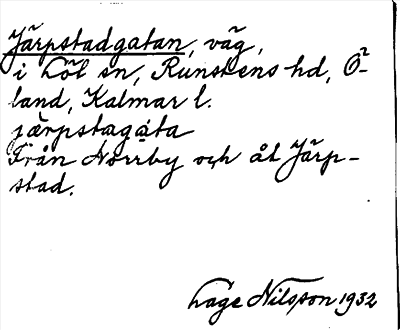 Järpstadgatan, väg,
i Löt sn, Runstens hd, Ö-
land, Kalmar l.
järpstagáta
Från Norrby och åt Järp-
stad.
Lage Nilsson 1932